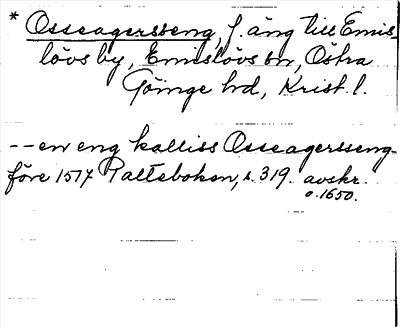 * Osseagersseng, f. äng till Emis-
lövs by, Emislövs sn, Östra
Göinge hd, Krist. l.
-- en eng kalliss Osseagersseng
före 1517 Palteboken, s. 319. avskr.
o. 1650.